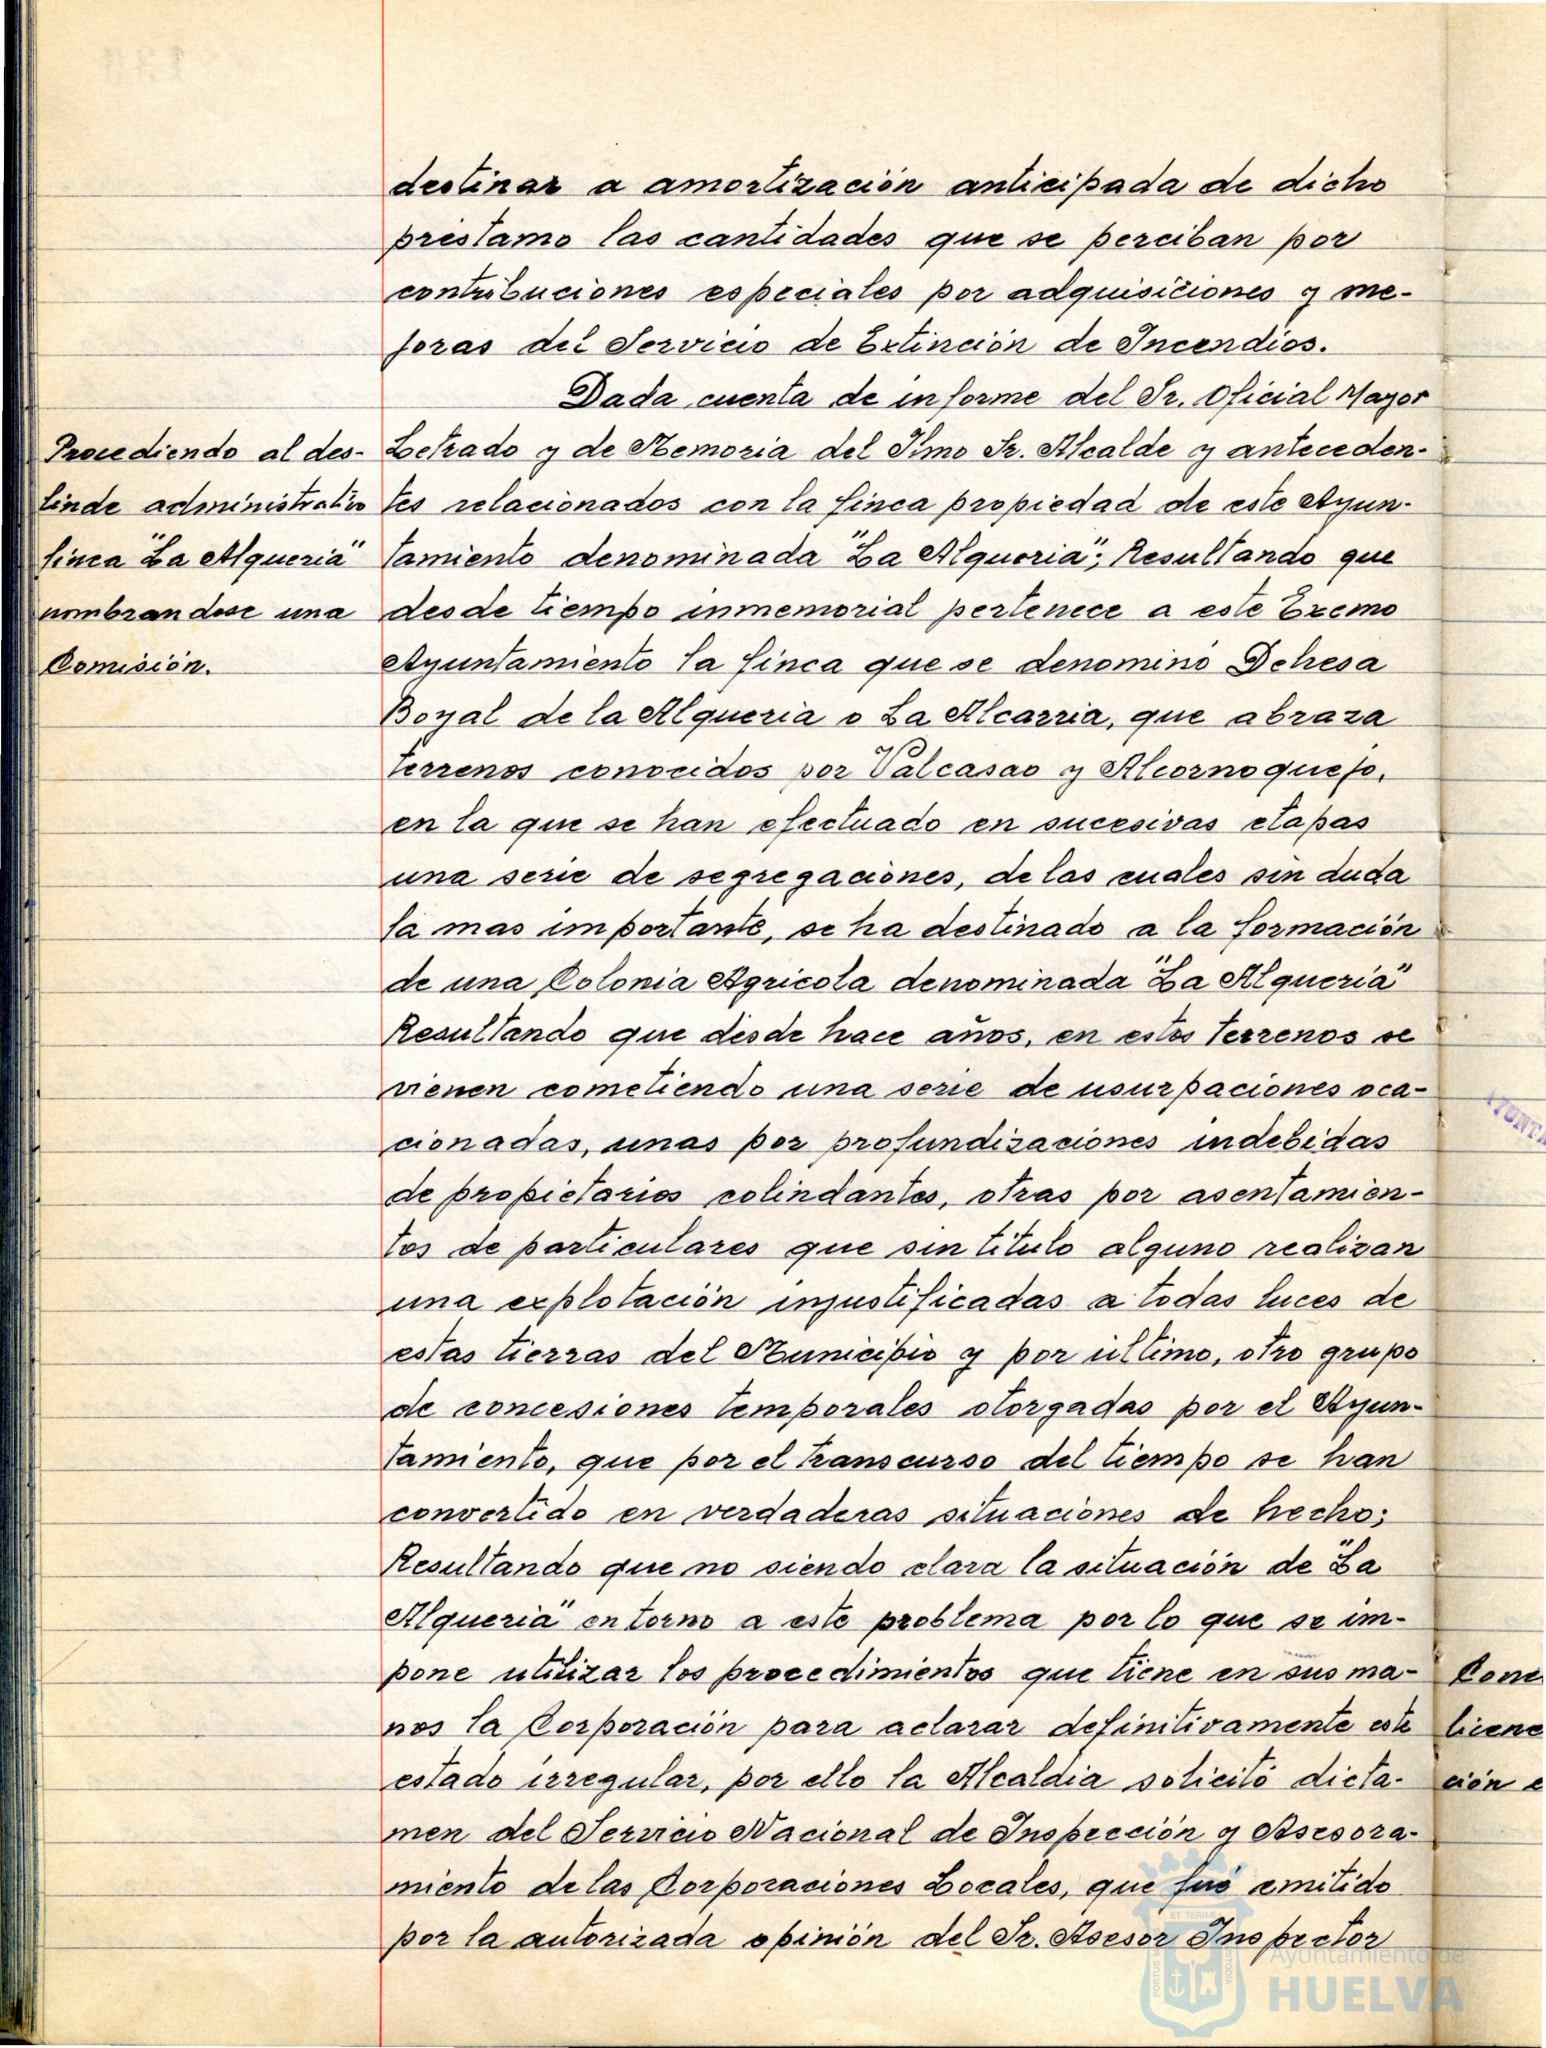 destinar a amortización anticipada de dicho
préstamo las cantidades que se perciban por
contribuciones especiales por adquisiciones y me-
joras del Servicio de Extinción de Incendios.
Dada cuenta de informe del Sr. Oficial Mayor
Procediendo al des-
linde administrativo
finca "La Alqueria"
nombrandose una
Comisión.
Letrado y de Memoria del Ilmo Sr. Alcalde y anteceden-
tes relacionados con la finca propiedad de este Ayun-
tamiento denominada "La Alqueria"; Resultando que
desde tiempo inmemorial pertenece a este Excmo
Ayuntamiento la finca que se denominó Dehesa
Boyal de la Alqueria o La Alcarria, que abraza
terrenos conocidos por Valcasao y Alcornoquejo,
en la que se han efectuado en sucesivas etapas
una serie de segregaciones, de las cuales sin duda
la mas importante, se ha destinado a la formación
de una Colonia Agricola denominada "La Alqueria"
Resultando que desde hace años, en estos terrenos se
vienen cometiendo una serie de usurpaciones oca-
cionadas, unas por profundizaciones indebidas
de propietarios colindantes, otras por asentamien-
tos de particulares que sin titulo alguno realizan
una explotación injustificadas a todas luces de
estas tierras del Municipio y por último, otro grupo
de concesiones temporales otorgadas por el Ayun-
tamiento, que por el transcurso del tiempo se han
convertido en verdaderas situaciones de hecho;
Resultando que no siendo clara la situación de "La
Alqueria" en torno a este problema por lo que se im-
pone utilizar los procedimientos que tiene en sus ma-
nos la Corporación para aclarar definitivamente este
estado irregular, por ello la Alcaldia solicitó dicta-
men del Servicio Nacional de Inspección y Asesora-
miento de las Corporaciones Locales, que fué emitido
por la autorizada opinión del Sr. Asesor Inspector
ción
Ayuntamiento de
HUELVA